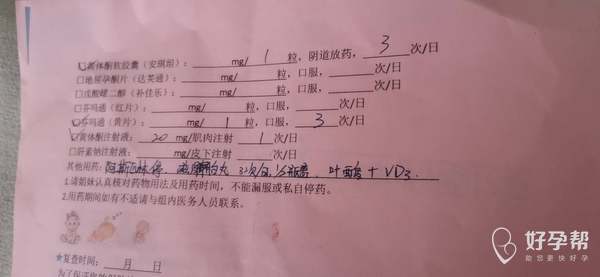 ☑黄体酮软胶囊(安琪坦):____mg/ 1 粒,阴道放药, 3 次/日
□地屈孕酮片(达芙通):____mg/____粒,口服,____次/日
□戊酸雌二醇(补佳乐):____mg/____粒,口服,____次/日
□芬吗通(红片):____mg/____粒,口服,____次/日
☑芬吗通(黄片):____mg/ 1 粒,口服, 3 次/日
☑黄体酮注射液: 20 mg/肌肉注射 1 次/日
□肝素钠注射液:____mg/皮下注射____次/日
其他用药:阿斯匹林 停 3次/日 叶酸+VD3.
1.请姐妹认真核对药物用法及用药时间,不能漏服或私自停药。
2.用药期间如有不适请与组内医务人员联系。
★复查时间:____月____日
为了保证您
好孕帮
助您更快好孕